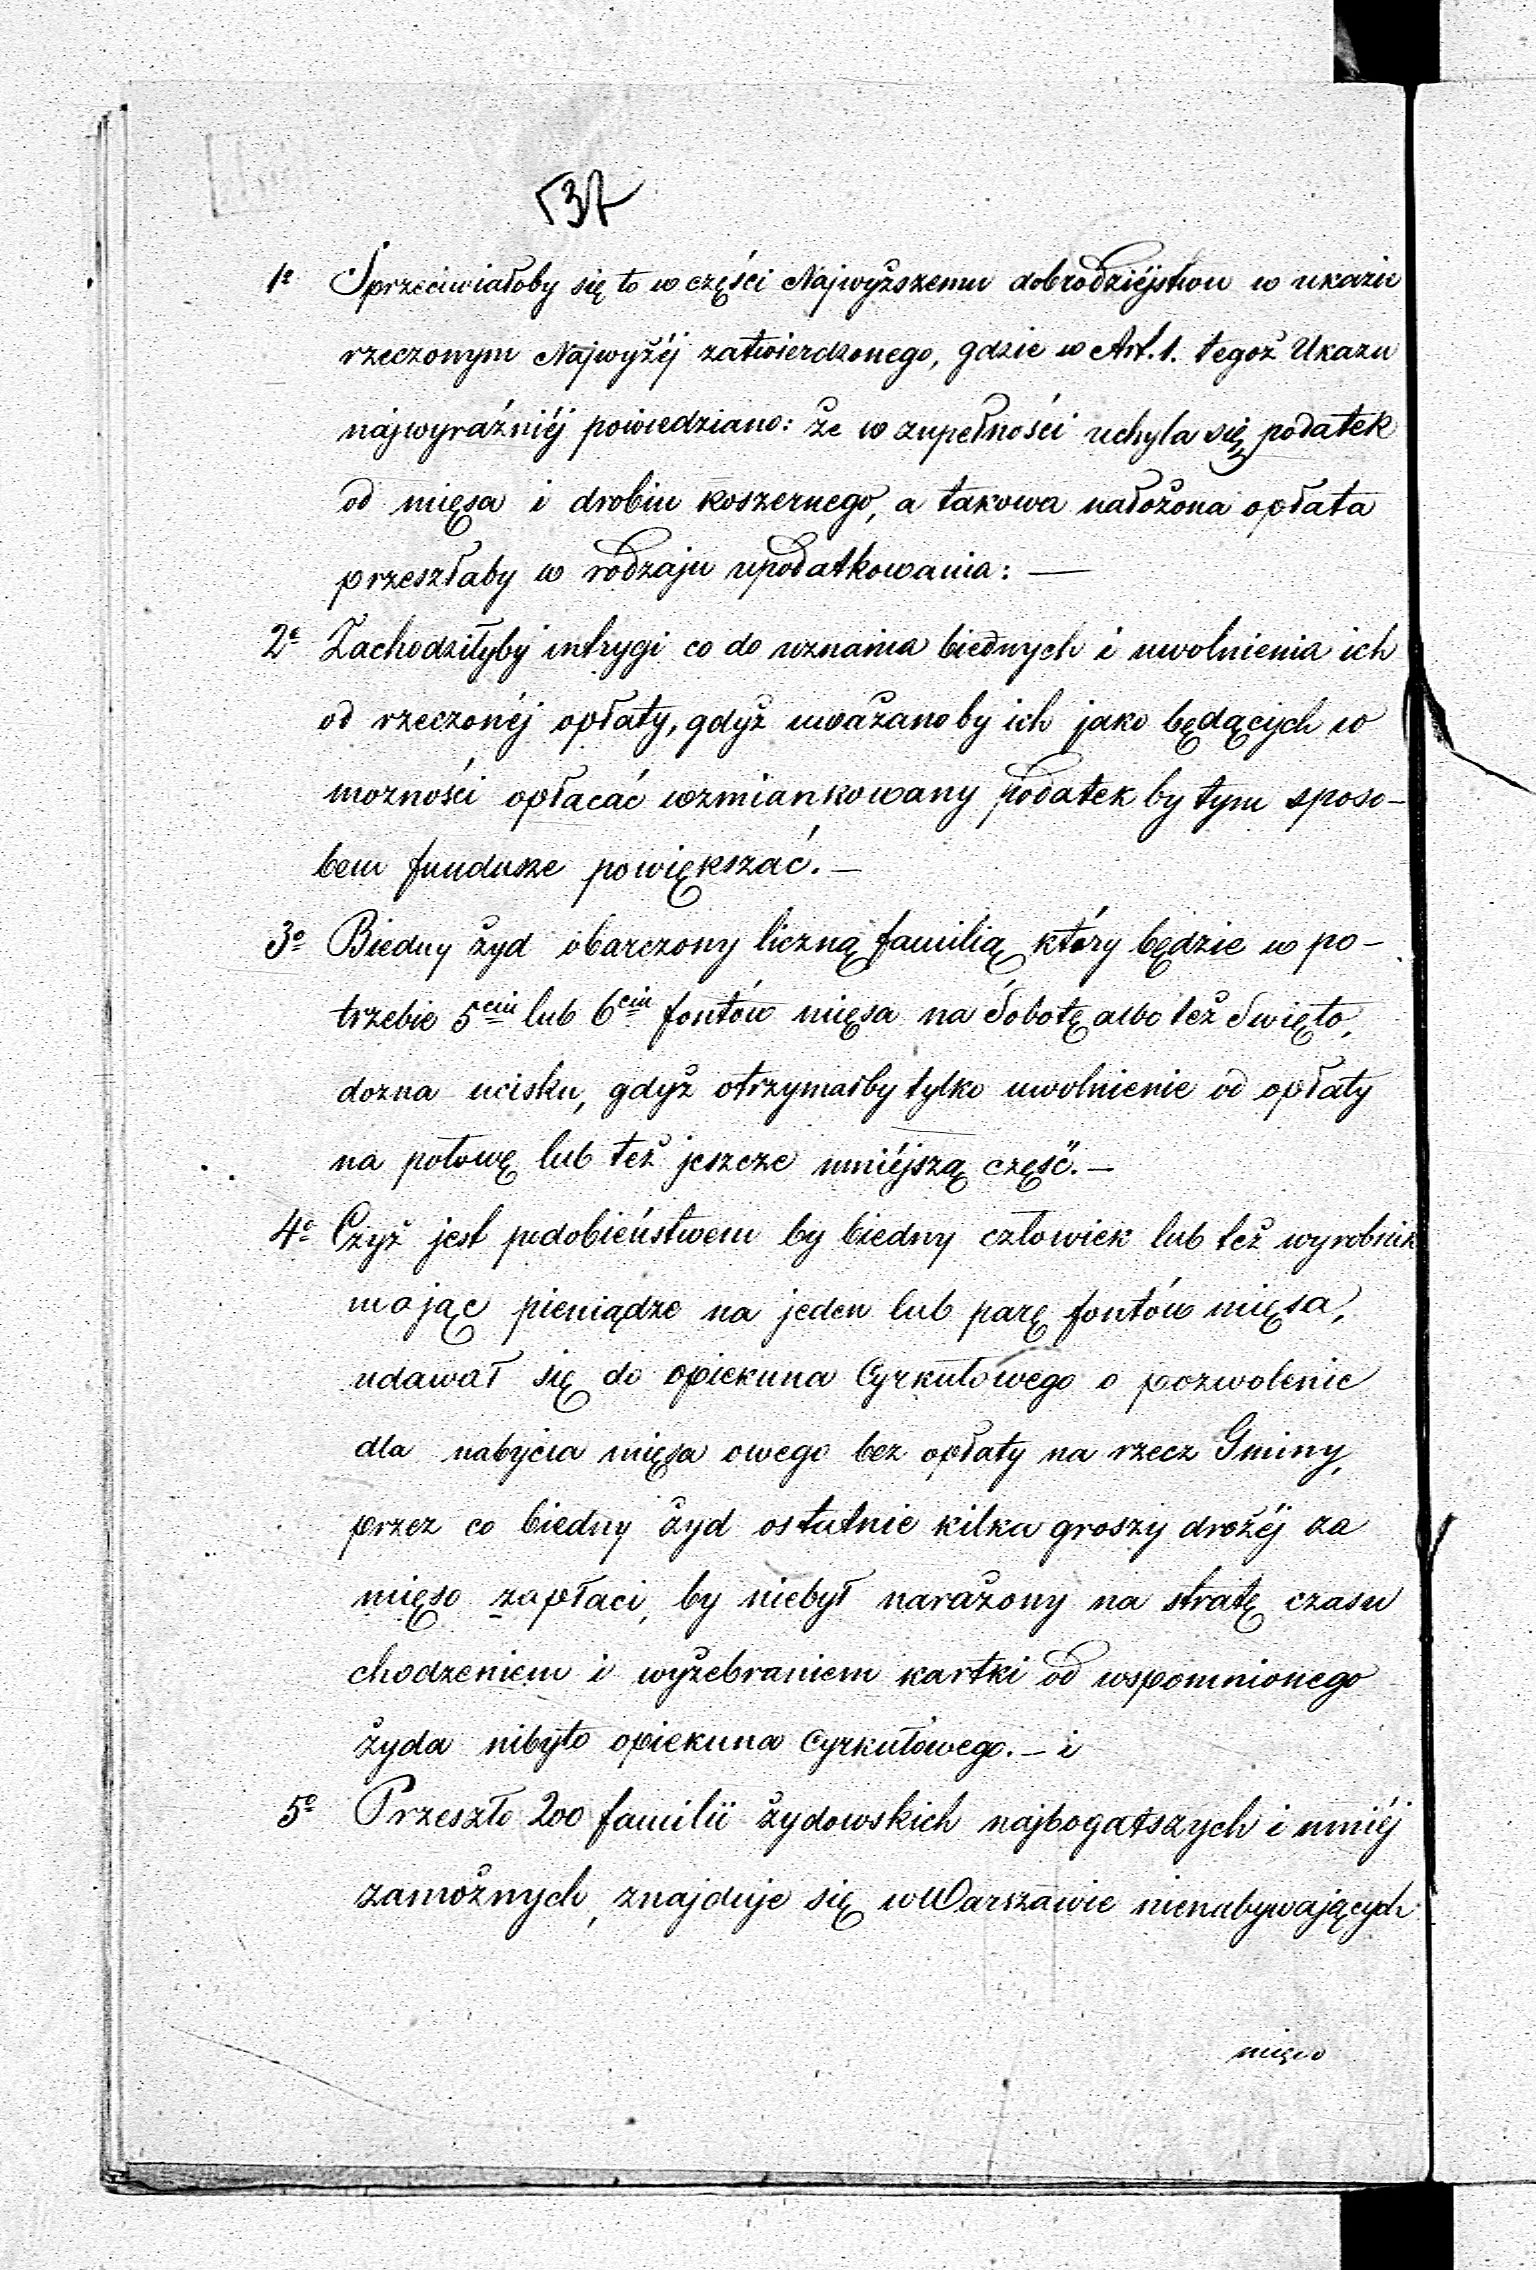 137
1o Sprzeciwiałoby się to w części Najwyższemu dobrodziéjstwu w ukazie
rzeczonym Najwyżéj zatwierdzonego, gdzie w Art. 1. tegoż Ukazu
najwyraźniéj powiedziano: że w zupełności uchyla się podatek
od mięsa i drobiu koszernego, a takowa nałożona opłata
przeszłaby w rodzaju upodatkowania: —
2o Zachodziłyby intrygi co do uznania biednych i uwolnienia ich
od rzeczonéj opłaty, gdyż uważanoby ich jako będących w
możności opłacać wzmiankowany podatek by tym sposo-
bem fundusze powiększać. —
3o Biedny żyd obarczony liczną familią który będzie w po-
trzebie 5ciu lub 6ciu fontów mięsa na Sobotę albo też Święto,
dozna ucisku, gdyż otrzymałby tylko uwolnienie od opłaty
na połowę lub też jeszcze mniéjszą część. —
4o Czyż jest podobieństwem by biedny człowiek lub też wyrobnik
mając pieniądze na jeden lub parę fontów mięsa,
udawał się do opiekuna Cyrkułowego o pozwolenie
dla nabycia mięsa owego bez opłaty na rzecz Gminy,
przez co biedny żyd ostatnie kilka groszy drożéj za
mięso zapłaci, by niebył narażony na stratę czasu
chodzeniem i wyżebraniem kartki od wspomnionego
żyda nibyto opiekuna Cyrkułowego. — i
5o Przeszło 200 familii żydowskich najbogatszych i mniéj
zamożnych, znajduje się w Warszawie nienabywających
mięso